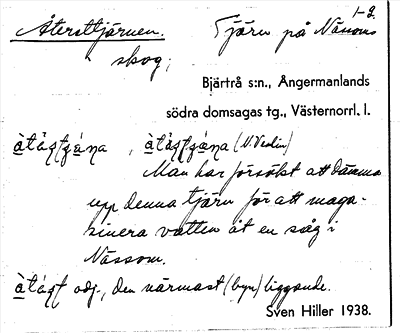 1-2.
Återsttjärnen. Tjärn på Nässoms
skog;
Bjärtrå s:n., Ångermanlands
södra domsagas tg., Västernorrl. l.
Man har försökt att dämma
upp denna tjärn för att maga-
sinera vatten åt en såg i
Nässom.
adj., den närmast (byn) liggande.
Sven Hiller 1938.